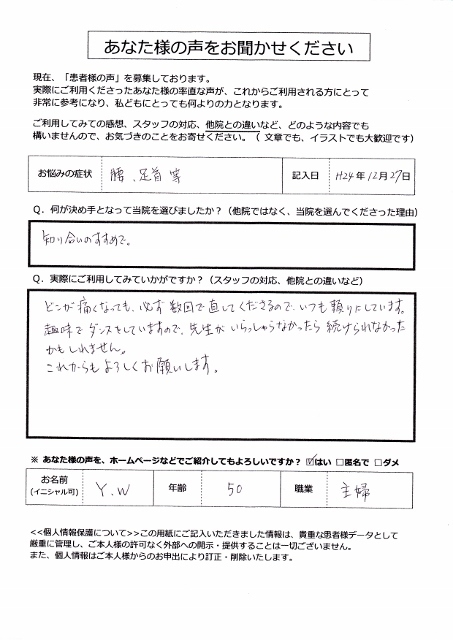 あなた様の声をお聞かせください
現在、「患者様の声」を募集しております。
実際にご利用くださったあなた様の率直な声が、これからご利用される方にとって
非常に参考になり、私どもにとっても何よりの力となります。
ご利用してみての感想、スタッフの対応、他院との違いなど、どのような内容でも
構いませんので、お気づきのことをお寄せください。（ 文章でも、イラストでも大歓迎です）
お悩みの症状 腰、足首 等 記入日 H24年12月27日
Q．何が決め手となって当院を選びましたか？（他院ではなく、当院を選んでくださった理由）
知り合いのすすめで。
Q．実際にご利用してみていかがですか？（スタッフの対応、他院との違いなど）
どこが痛くなっても、必ず数回で直してくださるので、いつも頼りにしています。
趣味でダンスをしていますので、先生がいらっしゃらなかったら続けられなかった
かもしれません。
これからもよろしくお願いします。
※ あなた様の声を、ホームページなどでご紹介してもよろしいですか？ ☑はい □匿名で □ダメ
お名前 Y.W 年齢 50 職業 主婦
(イニシャル可)
<<個人情報保護について>>この用紙にご記入いただきました情報は、貴重な患者様データとして
厳重に管理し、ご本人様の許可なく外部への開示・提供することは一切ございません。
また、個人情報はご本人様からのお申出により訂正・削除いたします。